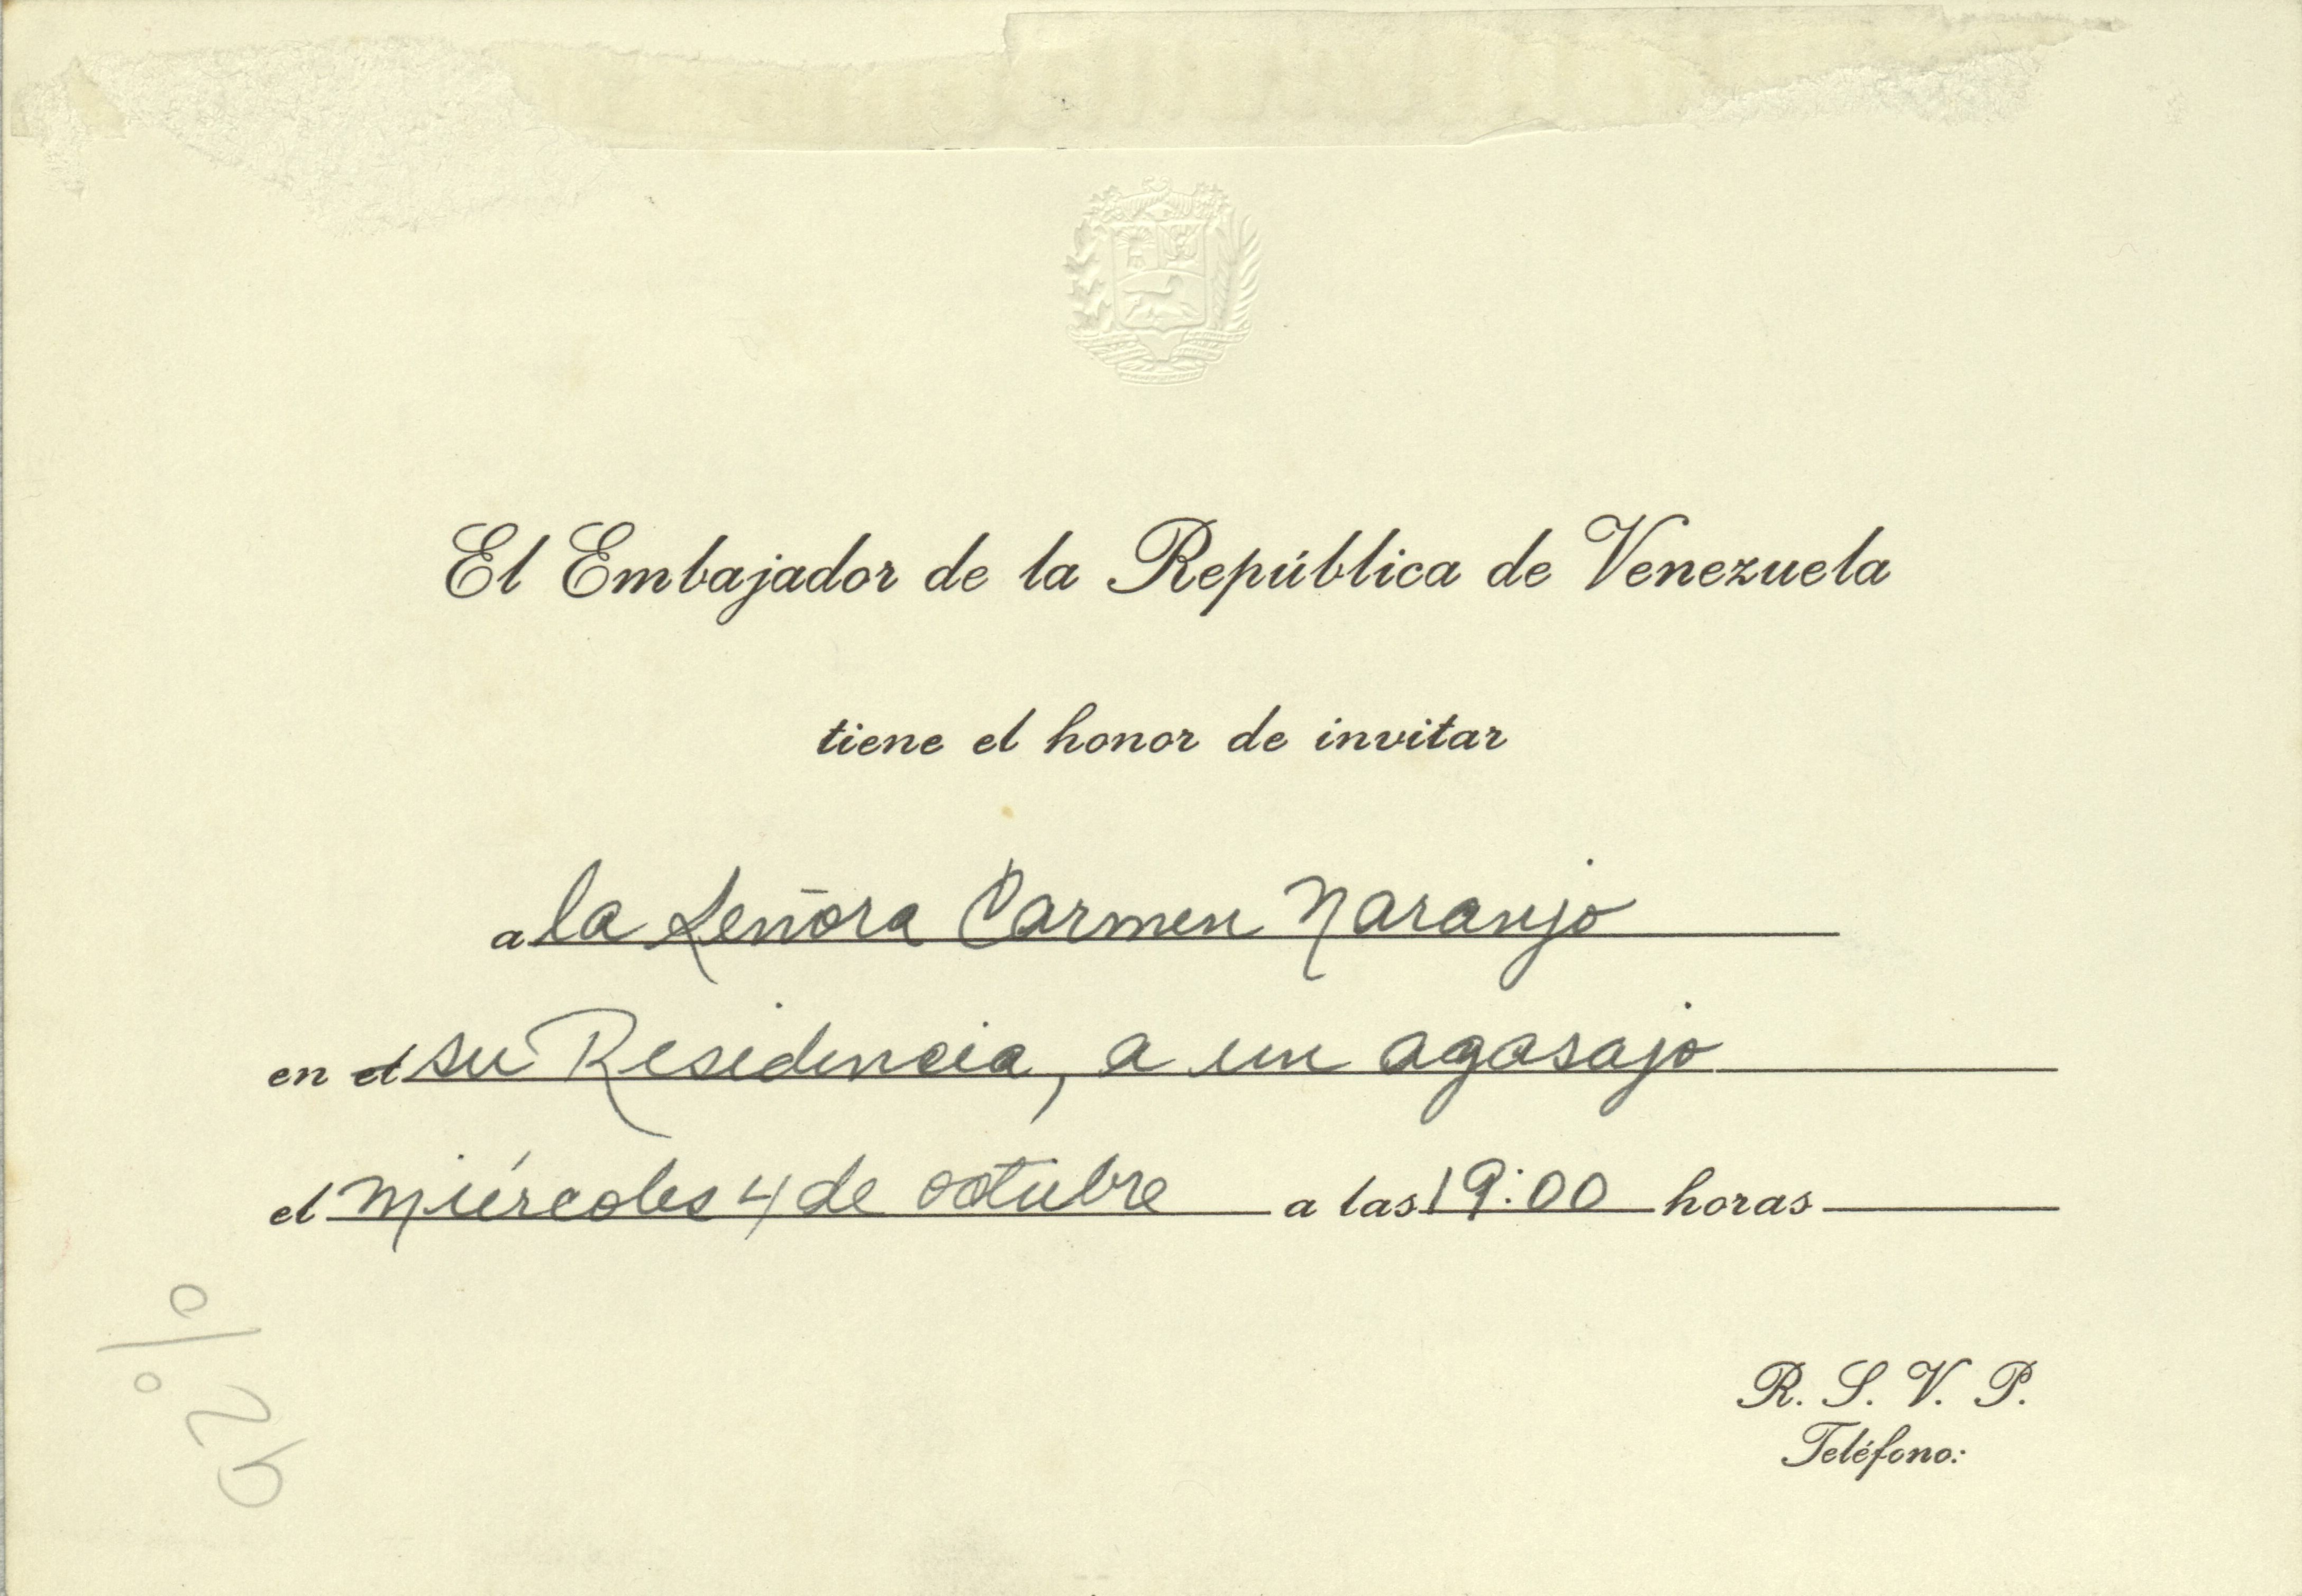 El Embajador de la República de Venezuela
tiene el honor de invitar
a la Señora Carmen Naranjo
en el su Residencia, a un agasajo
el miércoles 4 de octubre a las 19:00 horas
R. S. V. P.
Teléfono: